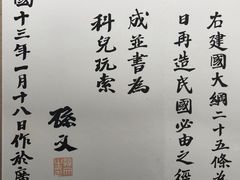 右建國大綱二十五條為
日再造民國必由之經
成並書為
科兒玩索
孫文
國十三年一月十八日作於廣